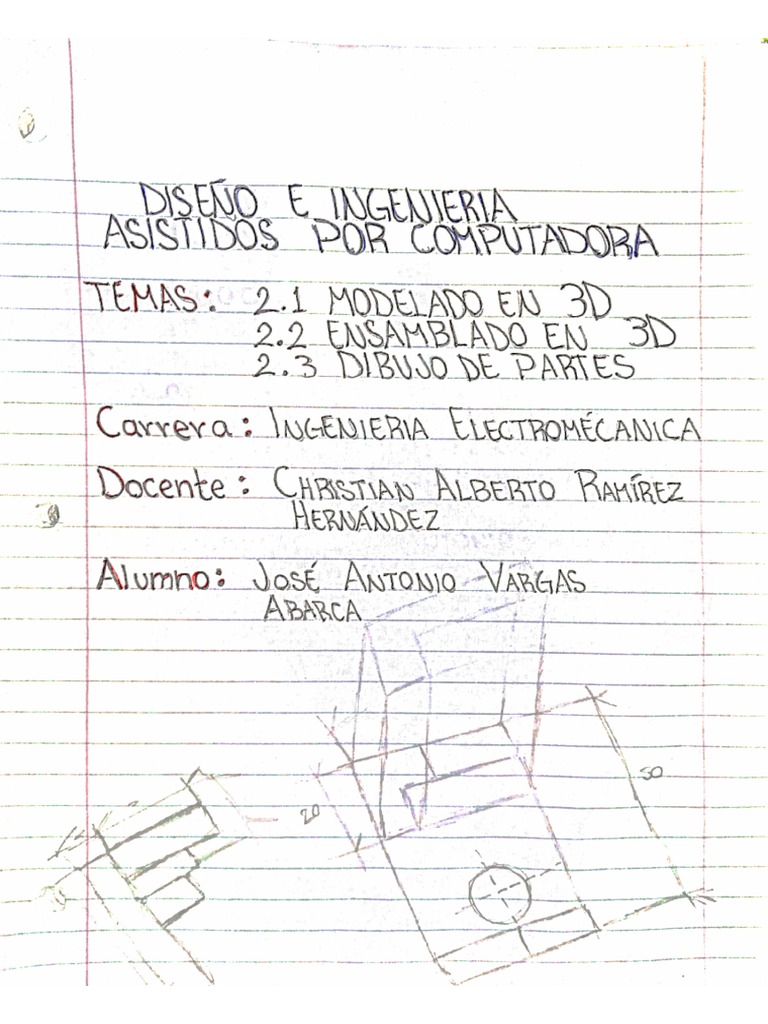 DISEÑO E INGENIERIA
ASISTIDOS POR COMPUTADORA
TEMAS: 2.1 MODELADO EN 3D
2.2 ENSAMBLADO EN 3D
2.3 DIBUJO DE PARTES
Carrera: INGENIERIA ELECTROMÉCANICA
Docente: CHRISTIAN ALBERTO RAMÍREZ
HERNÁNDEZ
Alumno: JOSÉ ANTONIO VARGAS
ABARCA
50
20